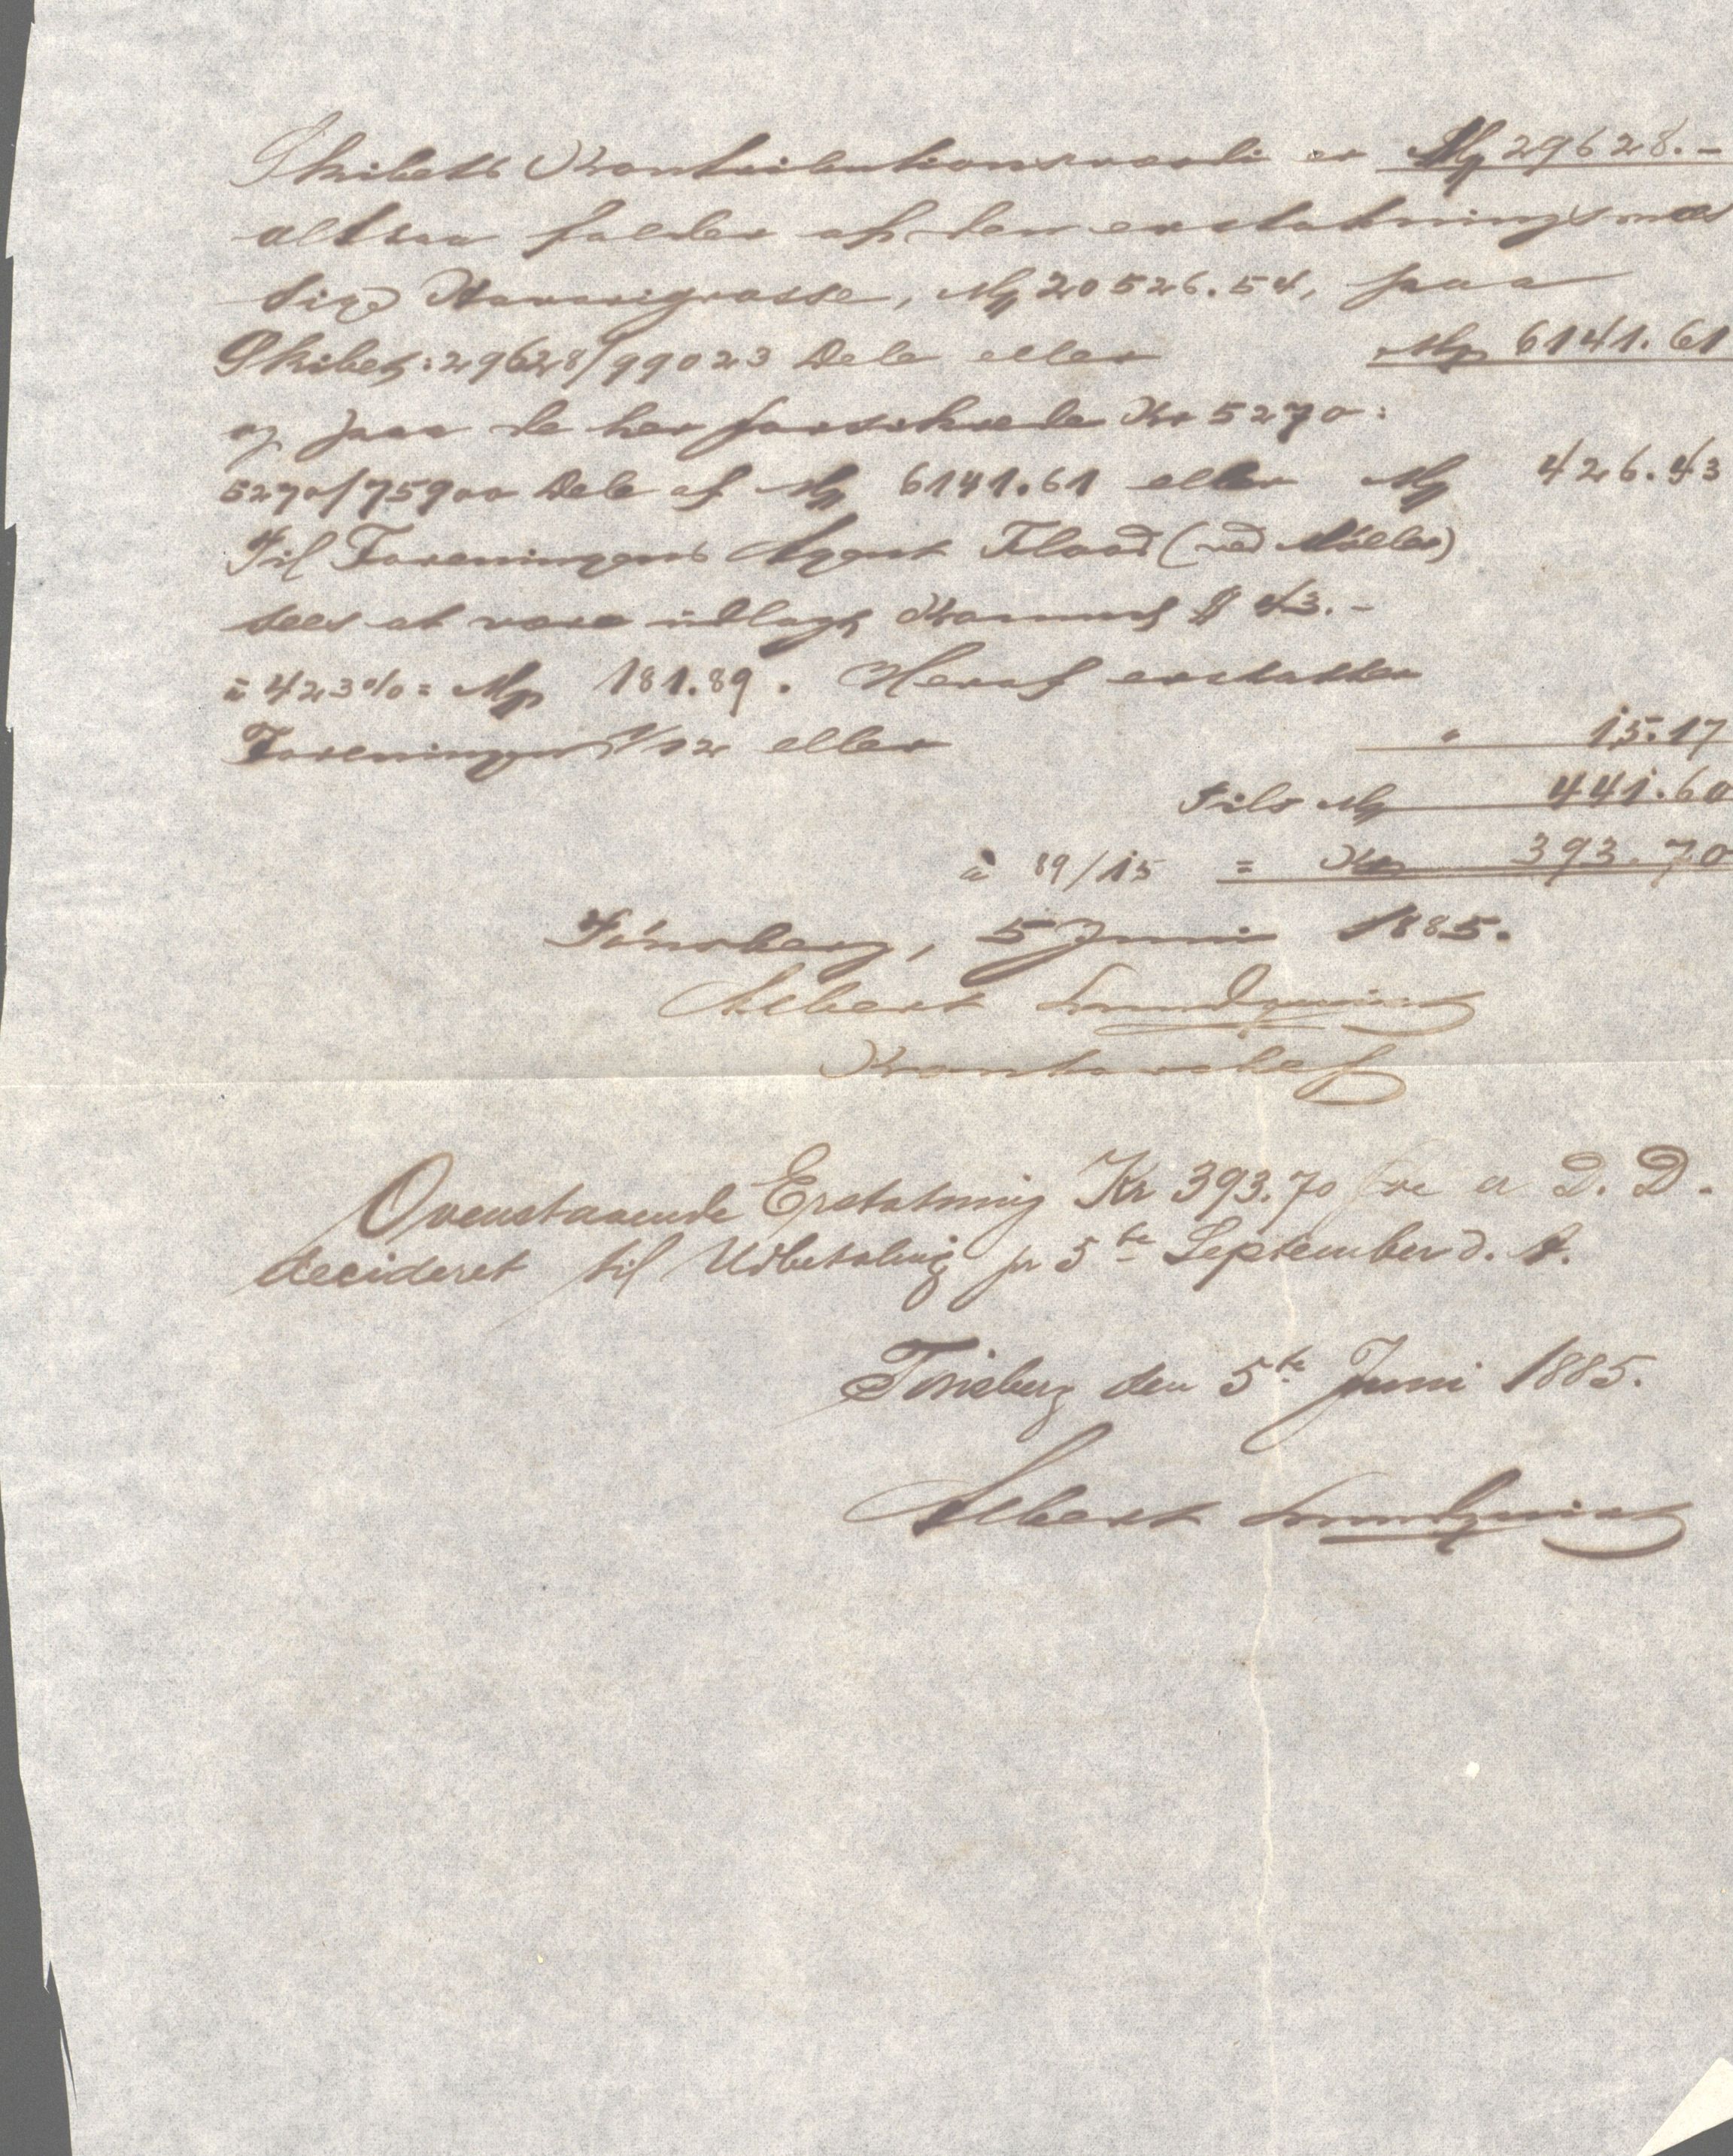 Skibets Kontributionsværdi er Mk 29628.-
altsaa falder af den erstatningsmæs
sige Havarigrosse, Mk 20526.54, paa
Skibet: 29628/99023 Dele eller Mk 6141.61
og paa de her forsikrede Kr 5270:
5270/75900 Dele af Mk 6141.61 eller Mk 426.43
Til Foreningens Agent Flood (ved Møller)
sees at være udlagt $ 43.-
à 423% = Mk 181.89. Heraf erstatter
Foreningen 1/12 eller " 15.17
Tils Mk 441.60
à 89/15 = Kr 393.70
Tönsberg, 5 Juni 1885.
Albert Lundquist
Kontorchef
Ovenstaaende Erstatning Kr 393.70 er D. D.
decideret til Udbetaling pr 5te September d. A.
Tönsberg den 5te Juni 1885.
Albert Lundquist